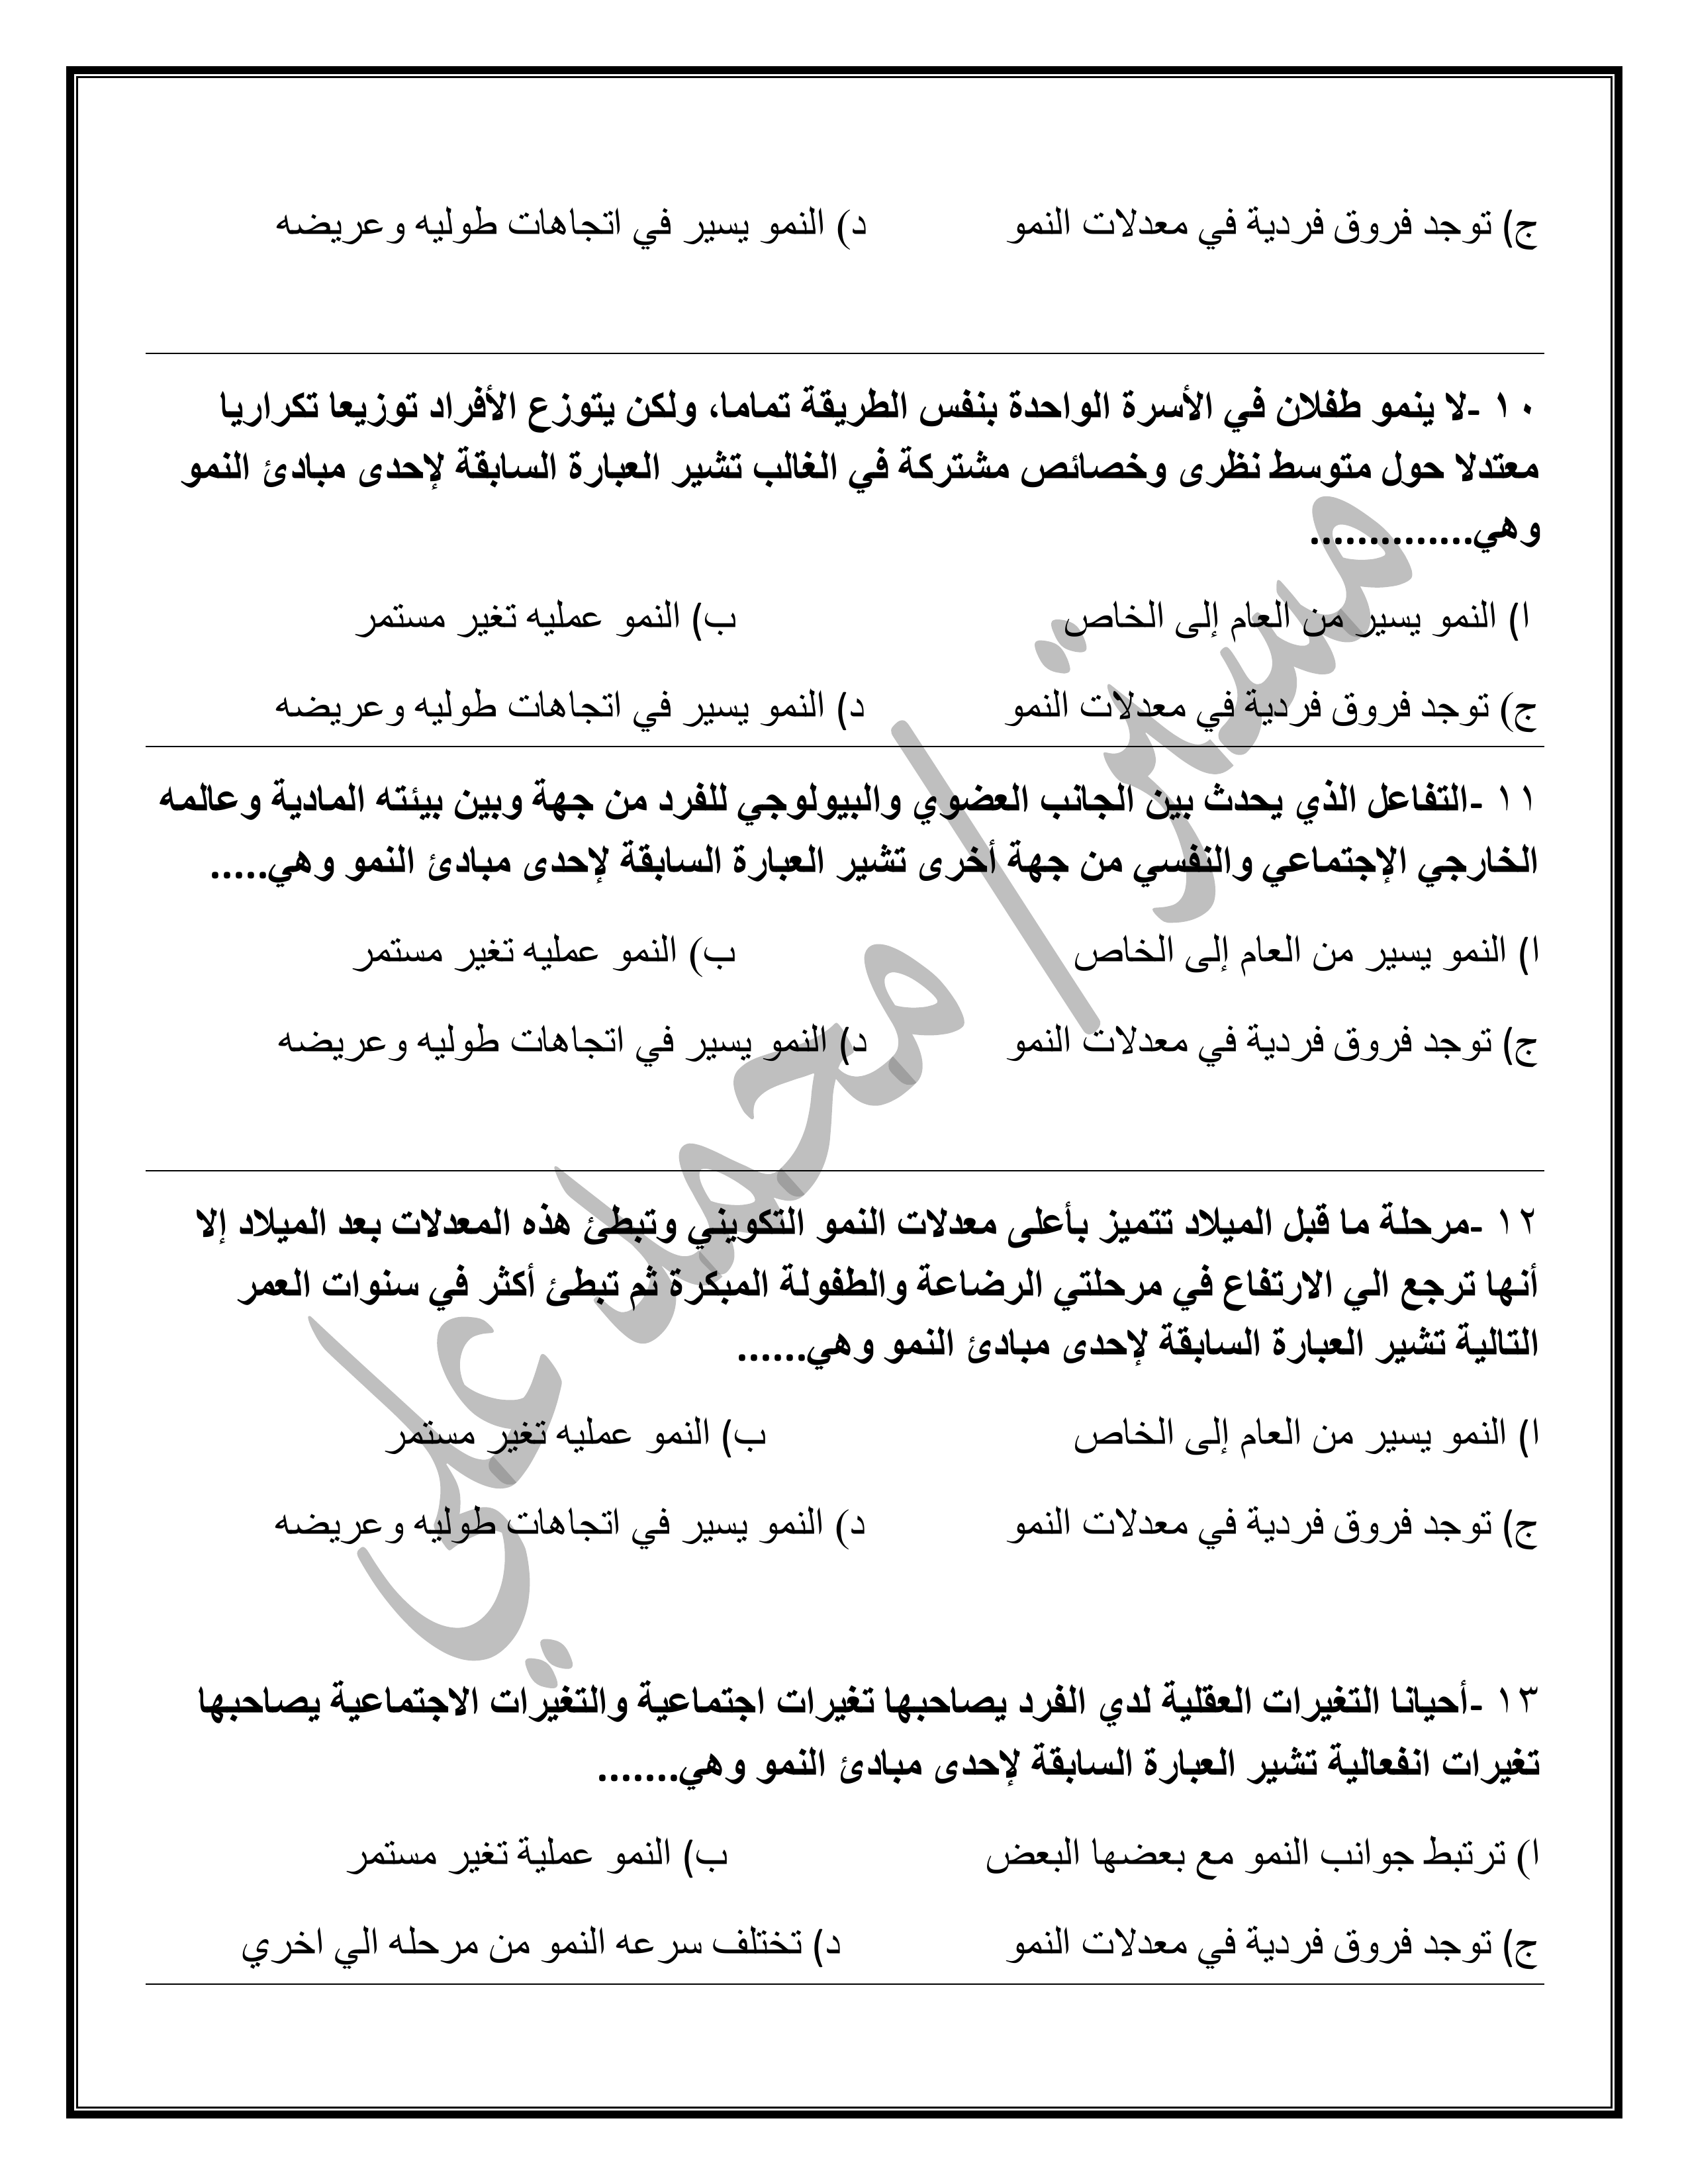 ج) توجد فروق فردية في معدلات النمو د) النمو يسير في اتجاهات طوليه وعريضه
١٠ -لا ينمو طفلان في الأسرة الواحدة بنفس الطريقة تماما، ولكن يتوزع الأفراد توزيعا تكراريا
معتدلا حول متوسط نظرى وخصائص مشتركة في الغالب تشير العبارة السابقة لإحدى مبادئ النمو
وهي..............
ا) النمو يسير من العام إلى الخاص ب) النمو عمليه تغير مستمر
ج) توجد فروق فردية في معدلات النمو د) النمو يسير في اتجاهات طوليه وعريضه
١١ -التفاعل الذي يحدث بين الجانب العضوي والبيولوجي للفرد من جهة وبين بيئته المادية وعالمه
الخارجي الإجتماعي والنفسي من جهة أخرى تشير العبارة السابقة لإحدى مبادئ النمو وهي.....
ا) النمو يسير من العام إلى الخاص ب) النمو عمليه تغير مستمر
ج) توجد فروق فردية في معدلات النمو د) النمو يسير في اتجاهات طوليه وعريضه
١٢ -مرحلة ما قبل الميلاد تتميز بأعلى معدلات النمو التكويني وتبطئ هذه المعدلات بعد الميلاد إلا
أنها ترجع الي الارتفاع في مرحلتي الرضاعة والطفولة المبكرة ثم تبطئ أكثر في سنوات العمر
التالية تشير العبارة السابقة لإحدى مبادئ النمو وهي......
ا) النمو يسير من العام إلى الخاص ب) النمو عمليه تغير مستمر
ج) توجد فروق فردية في معدلات النمو د) النمو يسير في اتجاهات طوليه وعريضه
١٣ -أحيانا التغيرات العقلية لدي الفرد يصاحبها تغيرات اجتماعية والتغيرات الاجتماعية يصاحبها
تغيرات انفعالية تشير العبارة السابقة لإحدى مبادئ النمو وهي.......
ا) ترتبط جوانب النمو مع بعضها البعض ب) النمو عملية تغير مستمر
ج) توجد فروق فردية في معدلات النمو د) تختلف سرعه النمو من مرحله الي اخري
مستر/ محمد علي